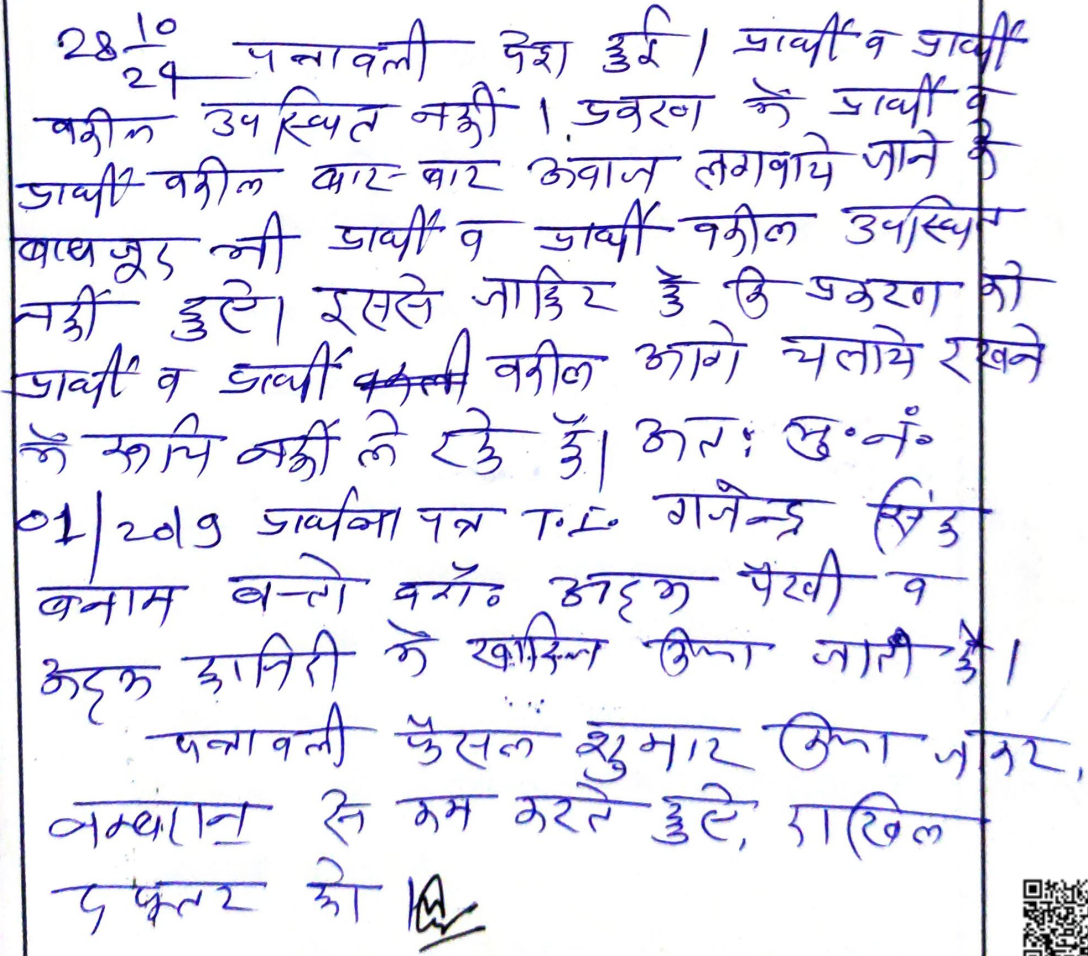 28 10/24 पत्रावली पेश हुई। प्रार्थी व प्रार्थी
वकील उपस्थित नहीं। प्रकरण में प्रार्थी व
प्रार्थी वकील बार-बार अवाज लगवाये जाने के
बावजूद भी प्रार्थी व प्रार्थी वकील उपस्थित
नहीं हुए। इससे जाहिर है कि प्रकरण को
प्रार्थी व प्रार्थी वकील आगे चलाये रखने
में रूचि नहीं ले रहे हैं। अतः मु॰नं॰
01/2019 प्रार्थना पत्र T.I. गजेन्द्र सिंह
बनाम बन्तो वगै॰ अदम पैरवी व
अदम हाजिरी में खारिज किया जाता है।
पत्रावली फैसल शुमार किया जाकर,
नम्बरान से कम करते हुए, दाखिल
दफ्तर हो।